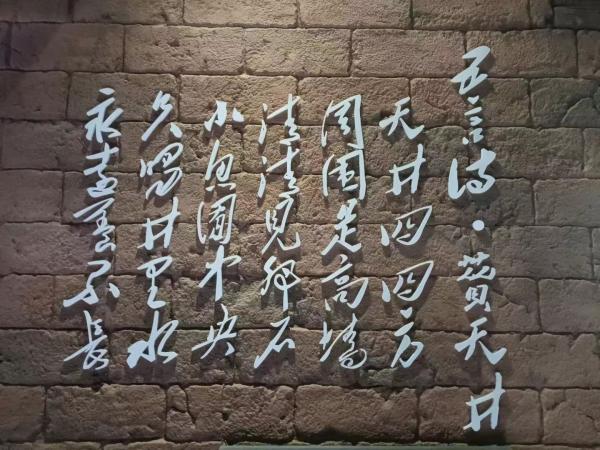 五言诗·赞天井
天井四四方
周围是高墙
清清见卵石
小鱼囿中央
久喝井里水
永远养不长